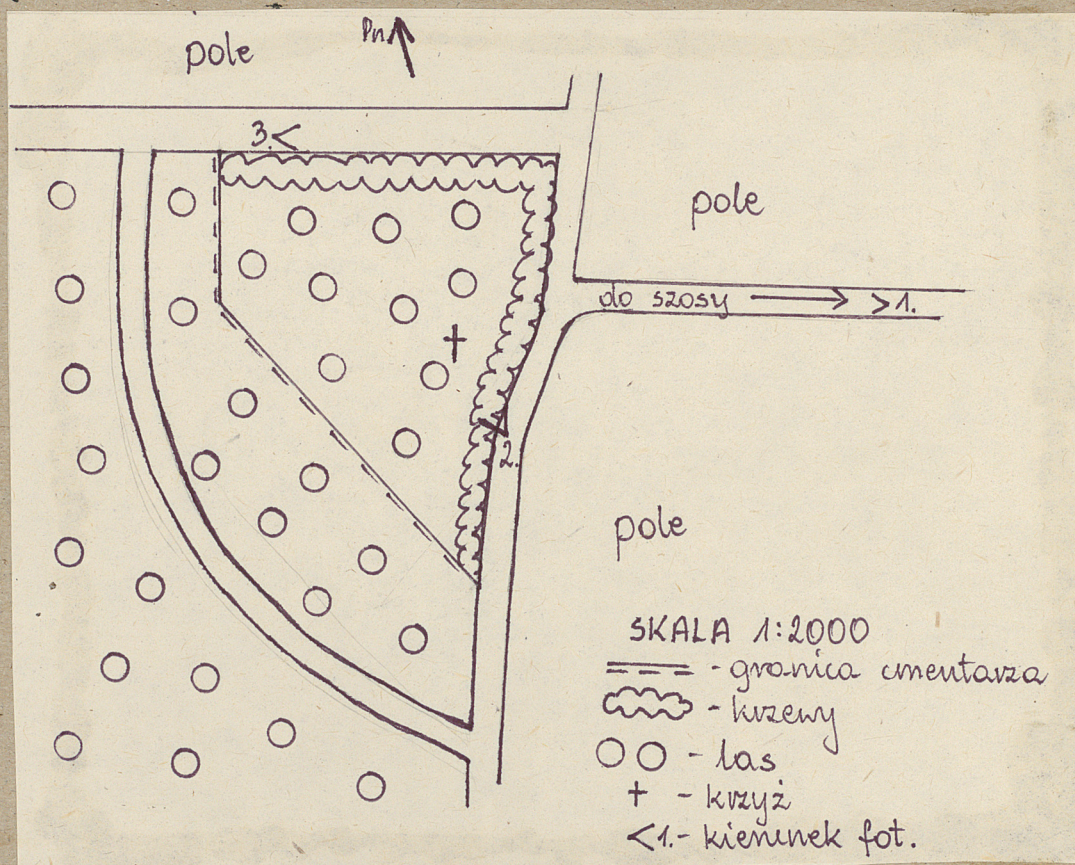 pole
Pn.
3.<
pole
do szosy → >1.
2.
pole
SKALA 1:2000
- granica cmentarza
- krzewy
- las
- krzyż
<1.- kierunek fot.